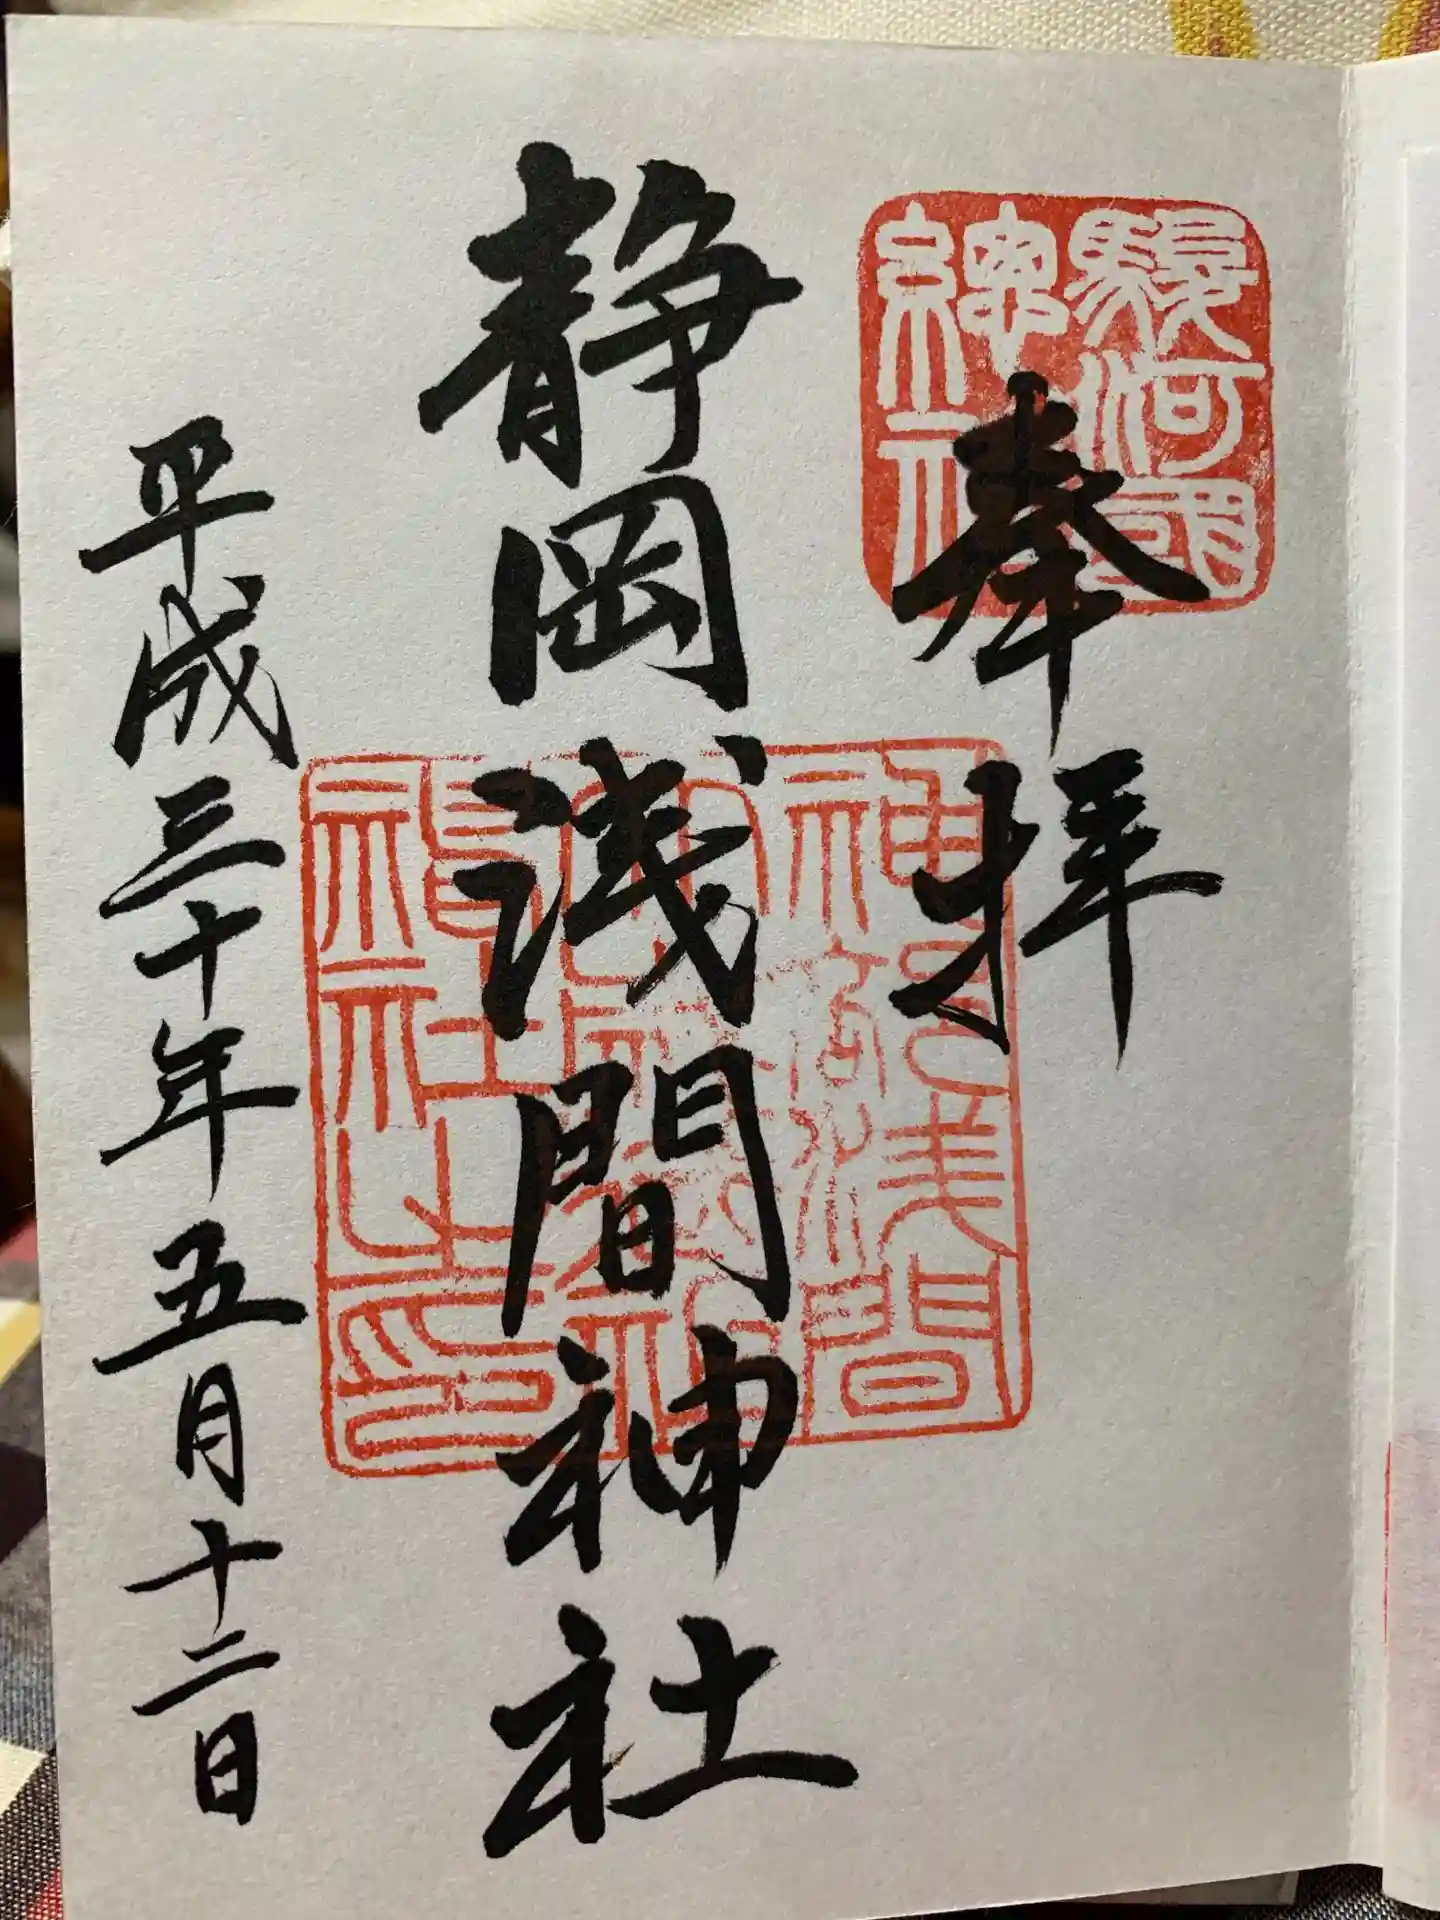 奉拝
駿河國
總社
静岡浅間神社
神部浅間
大歳御祖
神社之印
平成三十年五月十二日